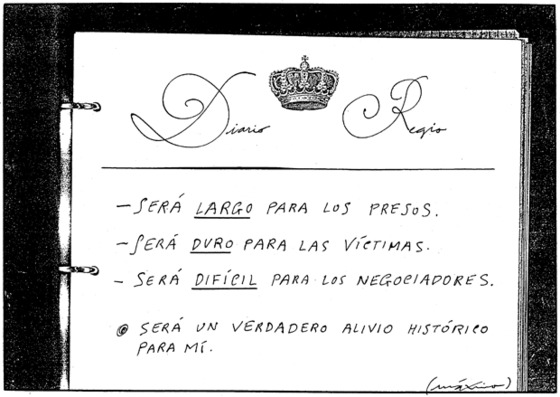 Diario Regio
- SERÁ LARGO PARA LOS PRESOS.
- SERÁ DURO PARA LAS VÍCTIMAS.
- SERÁ DIFÍCIL PARA LOS NEGOCIADORES.
● SERÁ UN VERDADERO ALIVIO HISTÓRICO
PARA MÍ.
(máximo)